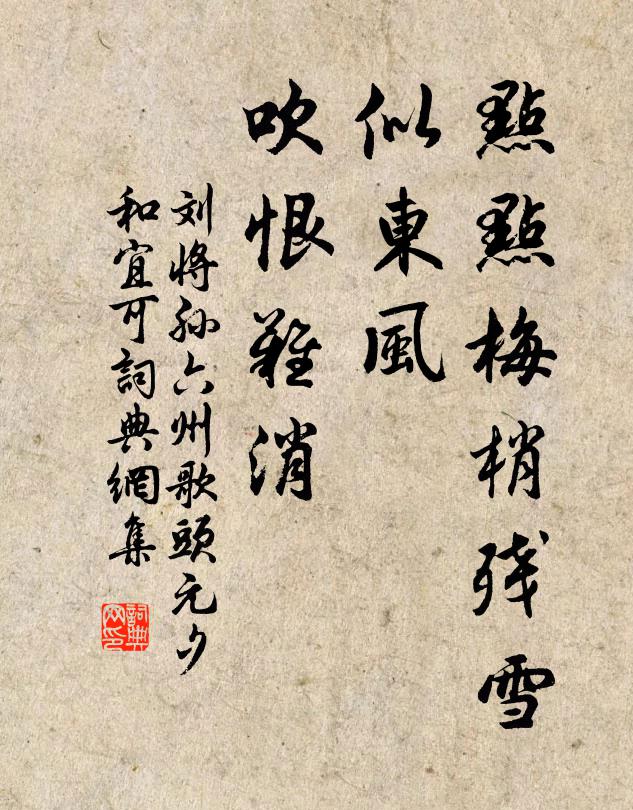 點點梅梢残雪
似東風
吹恨難消
刘將孙六州歌頭元夕
和宜可詞典網集
詞典网印